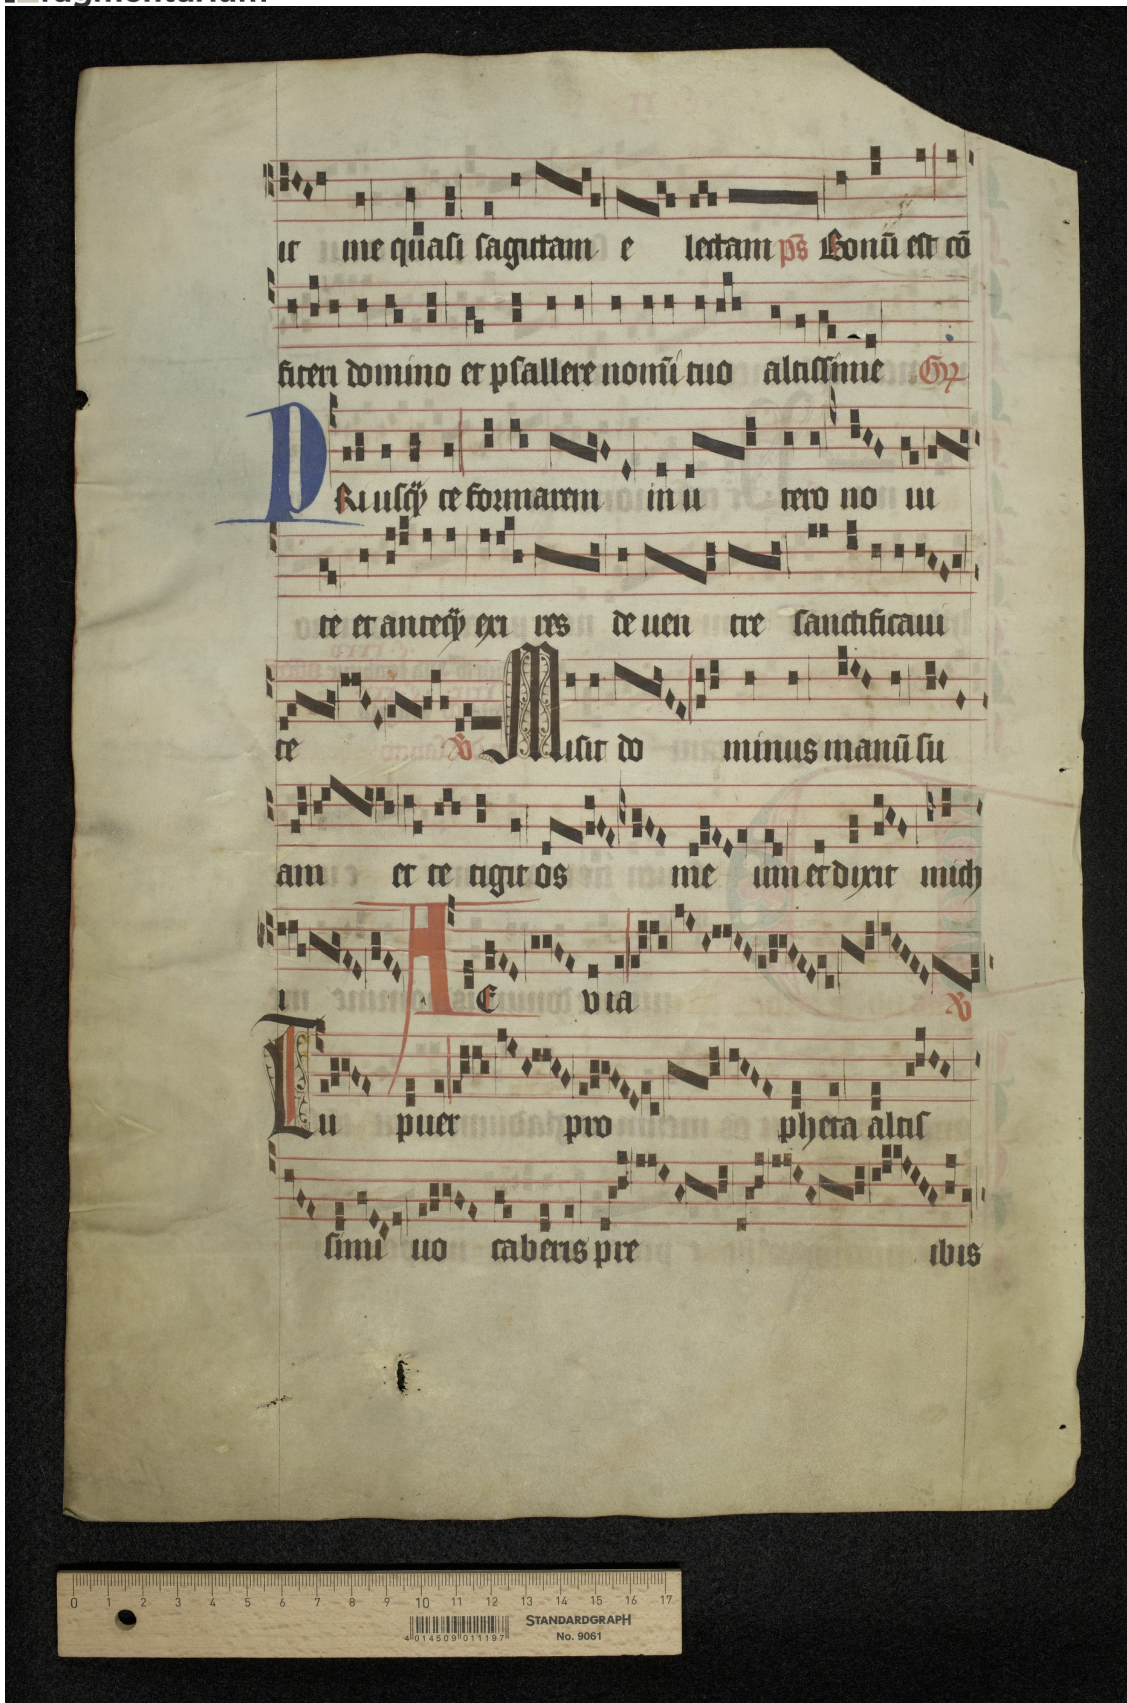 fragmentarium
it me quasi sagittam e lectam ps̄ Bonū est cō
fiteri domino et psallere nomi̅ tuo altissime Gr̄
PRi usq̄ te formarem in u tero no ui
te et anteq̄ exi res de uen tre sanctificaui
te V̄ Misit do minus manū su
am et te tigit os me um et dixit mich
i A E v ia V̄
Tu puer pro pheta altis
simi uo caberis pre ibis
0 1 2 3 4 5 6 7 8 9 10 11 12 13 14 15 16 17
4 014509 011197
STANDARDGRAPH
No. 9061